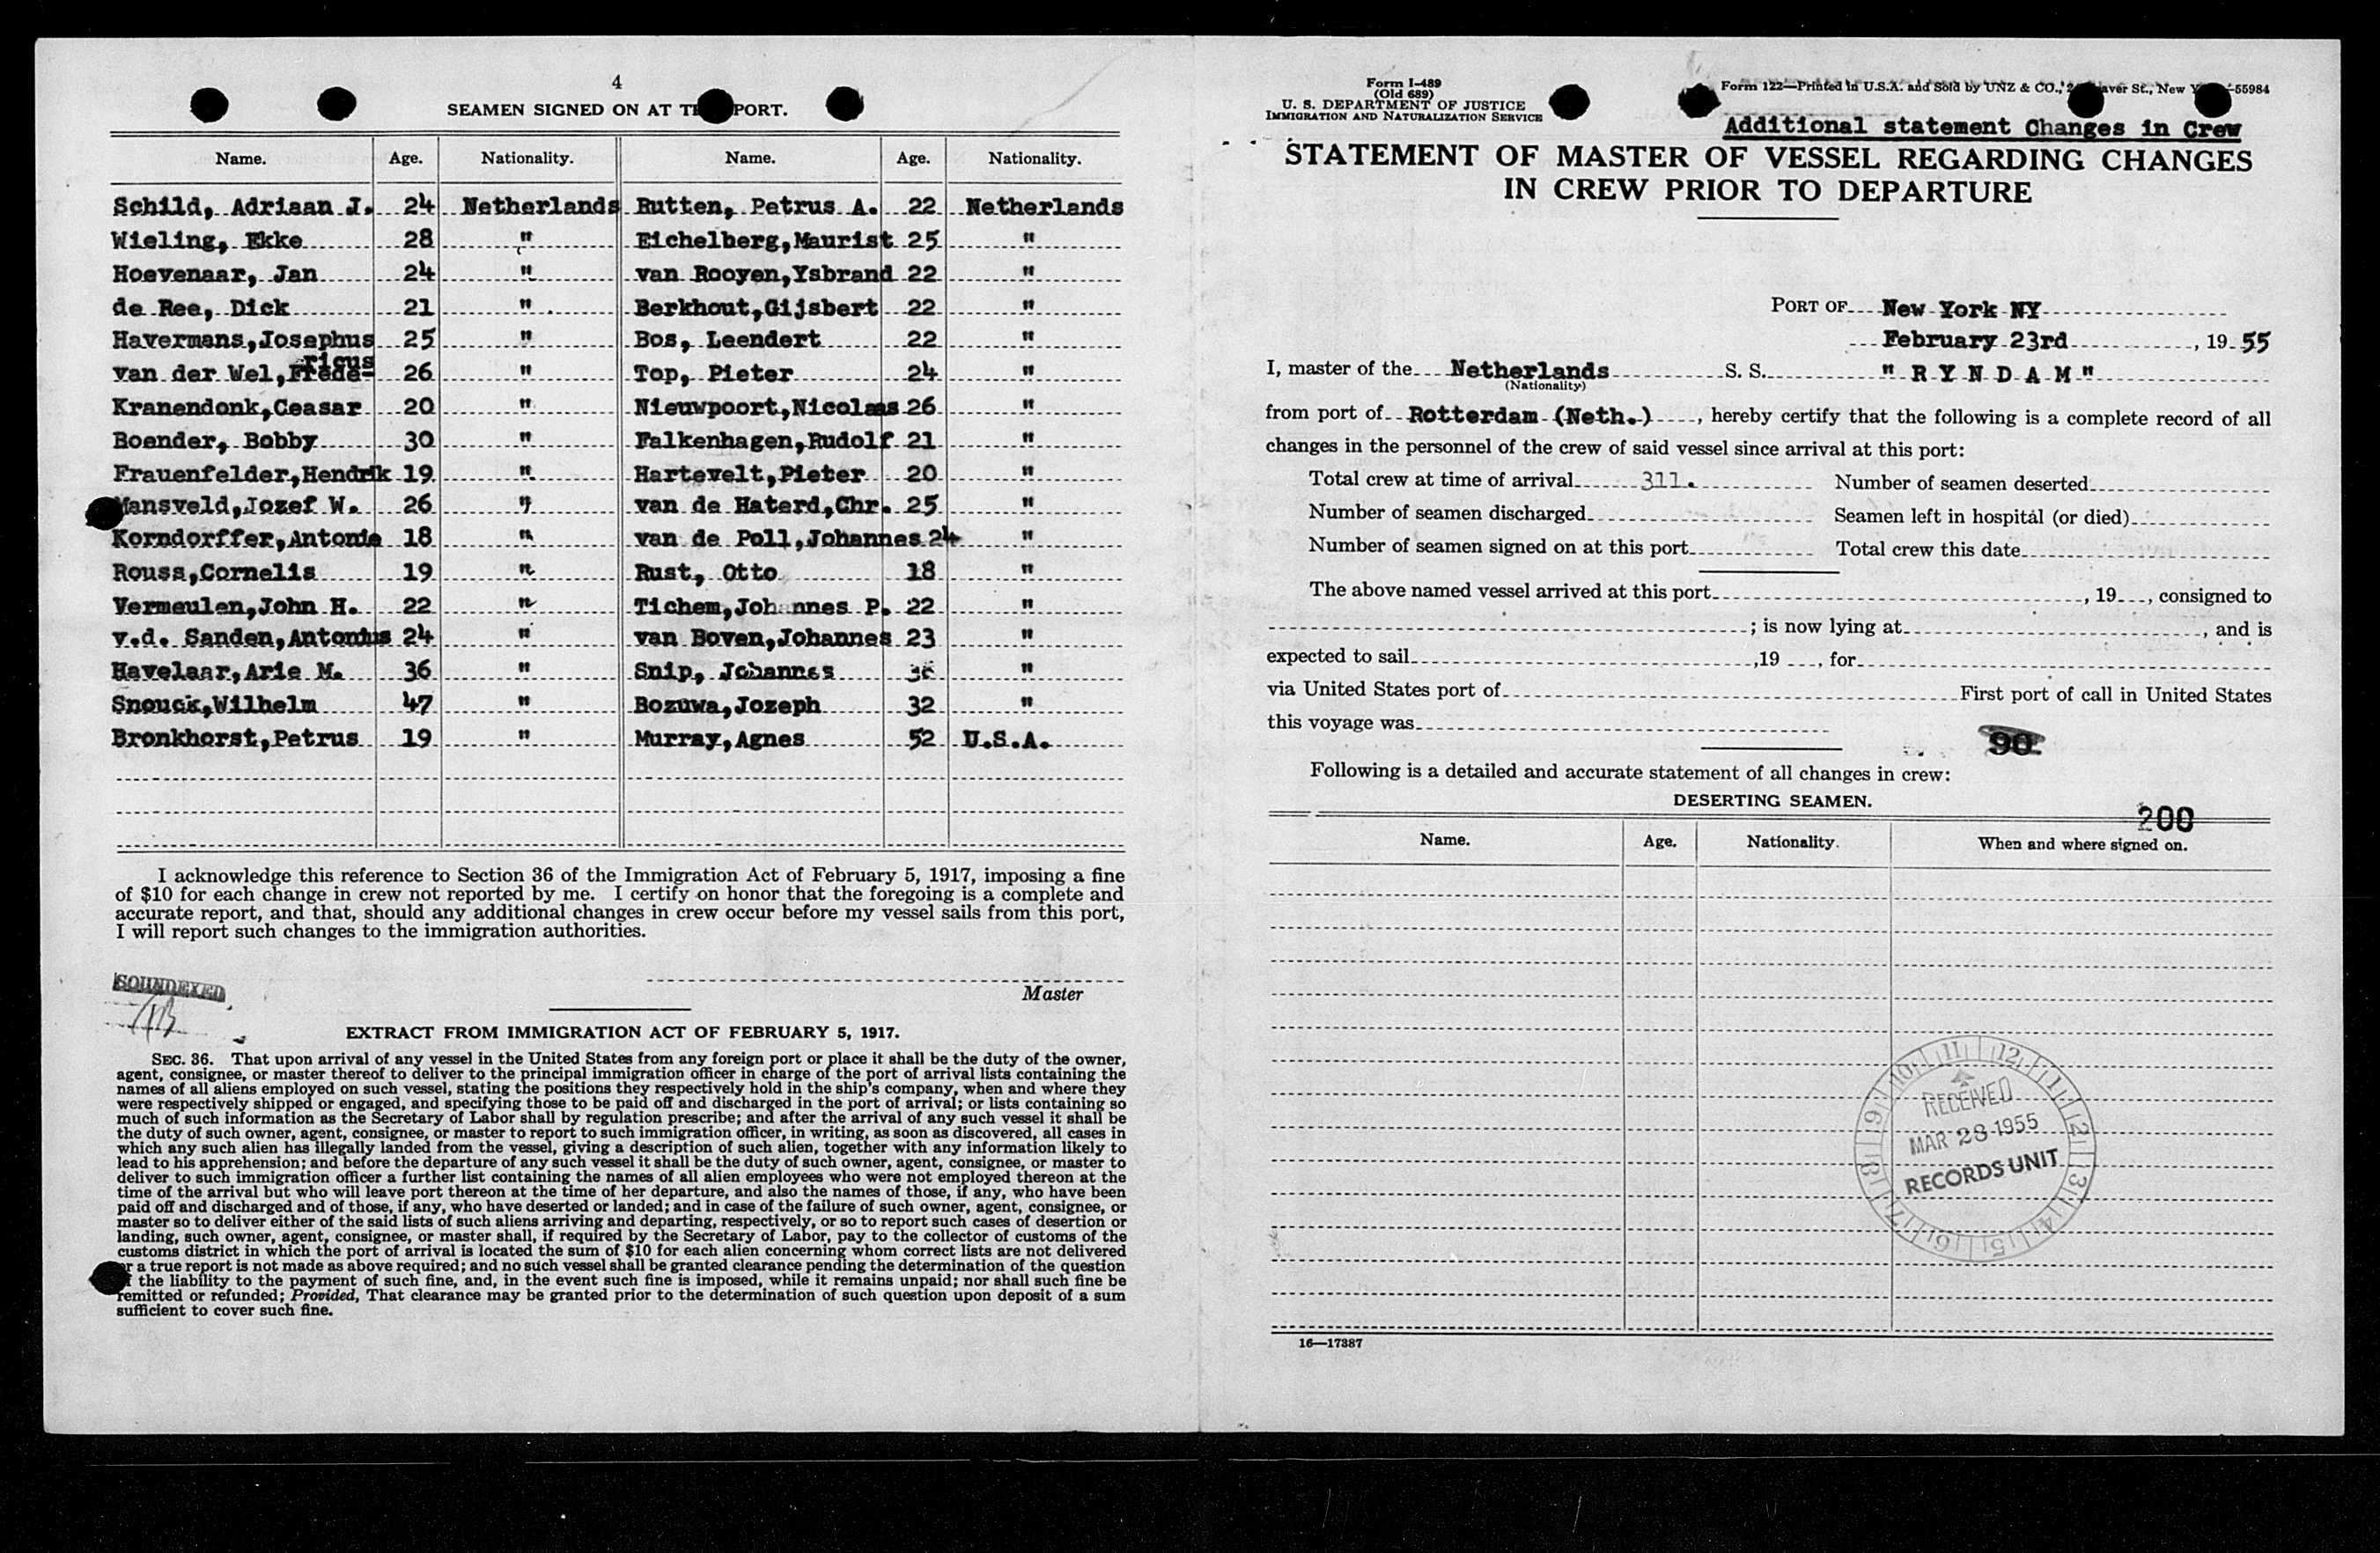 4
SEAMEN SIGNED ON AT PORT.
Name. Age. Nationality. Name. Age. Nationality.
Schild, Adriaan J. 24 Netherlands Rutten, Petrus A. 22 Netherlands
Wieling, Ekke 28 " Eichelberg,Maurist 25 "
Hoevenaar, Jan 24 " van Rooyen,Ysbrand 22 "
de Ree, Dick 21 " Berkhout,Gijsbert 22 "
Havermans,Josephus 25 " Bos, Leendert 22 "
ricus
van der Wel,Frede- 26 " Top, Pieter 24 "
Kranendonk,Ceasar 20 " Nieuwpoort,Nicolaas 26 "
Boender, Bobby 30 " Falkenhagen,Rudolf 21 "
Frauenfelder,Hendrik 19 " Hartevelt,Pieter 20 "
Mansveld,Jozef W. 26 " van de Haterd,Chr. 25 "
Korndorffer,Antonie 18 " van de Poll,Johannes 24 "
Rouss,Cornelis 19 " Rust, Otto 18 "
Vermeulen,John H. 22 " Tichem,Johannes P. 22 "
v.d. Sanden,Antonius 24 " van Boven,Johannes 23 "
Havelaar,Arie M. 36 " Snip, Johannes "
Snouck,Wilhelm 47 " Bozuwa,Jozeph 32 "
Bronkhorst,Petrus 19 " Murray,Agnes 52 U.S.A.
I acknowledge this reference to Section 36 of the Immigration Act of February 5, 1917, imposing a fine
of $10 for each change in crew not reported by me. I certify on honor that the foregoing is a complete and
accurate report, and that, should any additional changes in crew occur before my vessel sails from this port,
I will report such changes to the immigration authorities.
SOUNDEXED
Master
EXTRACT FROM IMMIGRATION ACT OF FEBRUARY 5, 1917.
SEC. 36. That upon arrival of any vessel in the United States from any foreign port or place it shall be the duty of the owner,
agent, consignee, or master thereof to deliver to the principal immigration officer in charge of the port of arrival lists containing the
names of all aliens employed on such vessel, stating the positions they respectively hold in the ship's company, when and where they
were respectively shipped or engaged, and specifying those to be paid off and discharged in the port of arrival; or lists containing so
much of such information as the Secretary of Labor shall by regulation prescribe; and after the arrival of any such vessel it shall be
the duty of such owner, agent, consignee, or master to report to such immigration officer, in writing, as soon as discovered, all cases in
which any such alien has illegally landed from the vessel, giving a description of such alien, together with any information likely to
lead to his apprehension; and before the departure of any such vessel it shall be the duty of such owner, agent, consignee, or master to
deliver to such immigration officer a further list containing the names of all alien employees who were not employed thereon at the
time of the arrival but who will leave port thereon at the time of her departure, and also the names of those, if any, who have been
paid off and discharged and of those, if any, who have deserted or landed; and in case of the failure of such owner, agent, consignee, or
master so to deliver either of the said lists of such aliens arriving and departing, respectively, or so to report such cases of desertion or
landing, such owner, agent, consignee, or master shall, if required by the Secretary of Labor, pay to the collector of customs of the
customs district in which the port of arrival is located the sum of $10 for each alien concerning whom correct lists are not delivered
or a true report is not made as above required; and no such vessel shall be granted clearance pending the determination of the question
the liability to the payment of such fine, and, in the event such fine is imposed, while it remains unpaid; nor shall such fine be
remitted or refunded; Provided, That clearance may be granted prior to the determination of such question upon deposit of a sum
sufficient to cover such fine.
Form I-489
(Old 689)
U. S. DEPARTMENT OF JUSTICE
IMMIGRATION AND NATURALIZATION SERVICE
Form 122—Printed in U.S.A. and Sold by UNZ & CO., St., New 55984
Additional statement Changes in Crew
STATEMENT OF MASTER OF VESSEL REGARDING CHANGES
IN CREW PRIOR TO DEPARTURE
PORT OF New York NY
February 23rd , 19 55
I, master of the Netherlands S. S. "R Y N D A M"
(Nationality)
from port of Rotterdam (Neth.) , hereby certify that the following is a complete record of all
changes in the personnel of the crew of said vessel since arrival at this port:
Total crew at time of arrival 311. Number of seamen deserted
Number of seamen discharged Seamen left in hospital (or died)
Number of seamen signed on at this port Total crew this date
The above named vessel arrived at this port , 19 , consigned to
; is now lying at , and is
expected to sail ,19 , for
via United States port of First port of call in United States
this voyage was
90
Following is a detailed and accurate statement of all changes in crew:
DESERTING SEAMEN.
200
Name. Age. Nationality. When and where signed on.
RECEIVED
MAR 28 1955
RECORDS UNIT
12 1 2 3 4 5 6 7 8 9 10 11
16—17387